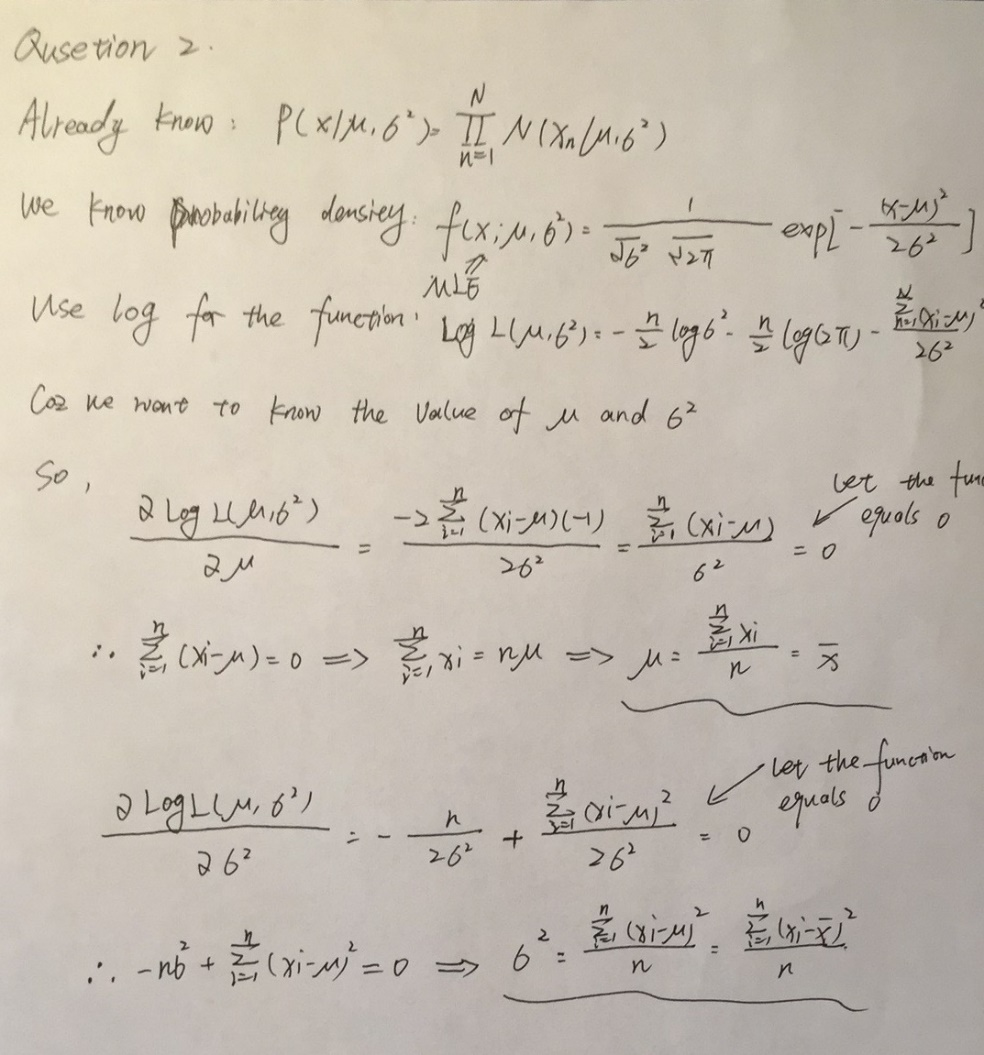 Qusetion 2.
Already know: P(x|μ,6²)= ∏_{n=1}^{N} N(x_n|μ,6²)
We know probability densiey: f(x;μ,6²)= 1/(√6² √2π) exp[-(x-μ)²/26²]
⇑
MLE
Use log for the function: Log L(μ,6²)= -n/2 log6² - n/2 log(2π) - ∑_{n=1}^{N}(xi-μ)²/26²
Coz we want to know the value of μ and 6²
So,
∂ Log L(μ,6²)/∂μ = -2∑_{i=1}^{n}(xi-μ)(-1)/26² = ∑_{i=1}^{n}(xi-μ)/6² = 0 ↙ Let the func
equals 0
∴ ∑_{i=1}^{n}(xi-μ)=0 => ∑_{i=1}^{n}xi = nμ => μ = ∑_{i=1}^{n}xi/n = x̄
∂ LogL(μ,6²)/∂6² = - n/26² + ∑_{i=1}^{n}(xi-μ)²/26² = 0 ↙ Let the function
equals 0
∴ -n6² + ∑_{i=1}^{n}(xi-μ)² = 0 => 6² = ∑_{i=1}^{n}(xi-μ)²/n = ∑_{i=1}^{n}(xi-x̄)²/n